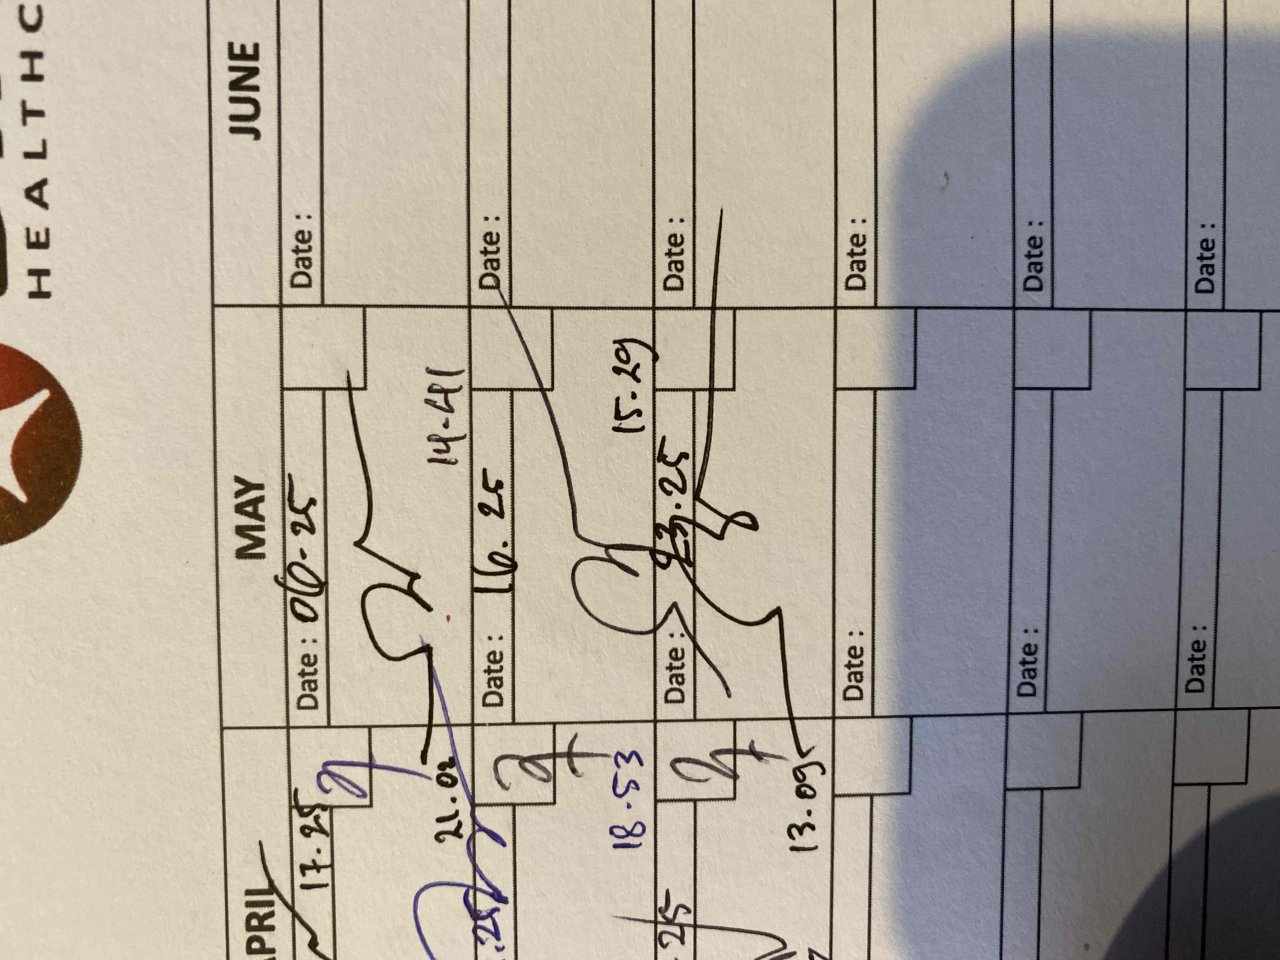 HEALTHC
PRIL MAY JUNE
17.25 Date : 06.25 Date :
21.02 14.41
.25 Date : 16.25 Date :
18.53 15.29
.25 Date : 23.25 Date :
13.09
Date : Date :
Date : Date :
Date : Date :